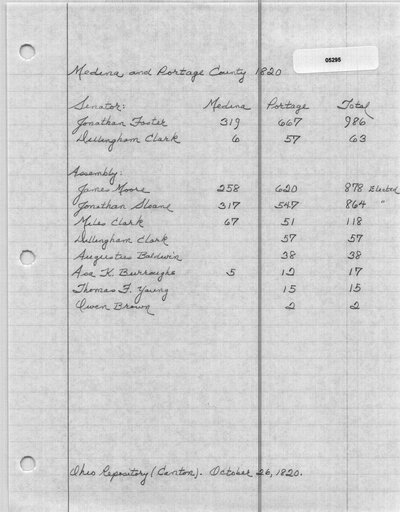 05295
Medina and Portage County 1820
Senator: Medina Portage Total
Jonathan Foster 319 667 986
Dillingham Clark 6 57 63
Assembly:
James Moore 258 620 878 Elected
Jonathan Sloane 317 547 864 "
Miles Clark 67 51 118
Dillingham Clark 57 57
Augustus Baldwin 38 38
Asa K. Burroughs 5 12 17
Thomas F. Young 15 15
Owen Brown 2 2
Ohio Repository (Canton). October 26, 1820.